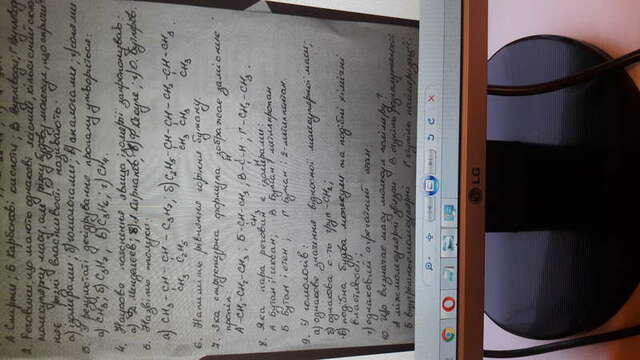 А Спирти; Б Карбонові кислоти; В Вуглеводи; Г Вуглеводні
2. Речовини, що мають однаковий якісний, кількісний склад,
молекулярну масу, але різну будову молекул, що спричи-
няє різні властивості називають:
а) ізомерами; б) гомологами; в) аналогами; г)
3. У результаті дегідрування пропану утворюється:
а) CH₃; б) C₂H₄; в) C₃H₆; г) CH₄.
4. Наукове пояснення явища ізомерії запропонував:
а) Д. Менделєєв; б) А. ; в) Ф. Кекуле; г) О. Бутлеров.
5. Назвіть сполуки:
а) CH₃ - CH - CH - C₃H₇, б) C₂H₅ - CH - CH - CH₂ - CH - CH₃.
CH₃ C₂H₅ CH₃ CH₃ CH₃
6. Напишіть рівняння горіння бутану.
7. Яка структурна формула зображає замісник
пропіл: H
А -CH₂-CH₂-CH₃; Б -CH-CH₃; В -C-H; Г -CH₂-CH₃.
CH₃ H
8. Яка пара речовин є ізомерами:
А Бутан і гексан, В Бутан і метилпропан
Б Бутан і етен; Г Бутан і 2-метилпентан.
9. У гомологів:
а) однакове значення відносної молекулярної маси;
б) однакова к-ть груп -CH₂;
в) подібна будова молекули та подібні хімічні
властивості;
г) однаковий агрегатний стан.
10. Що визначає масу молекул полімеру?
А міжмолекулярні зв'язки В ступінь розгалуженості
Б внутрішньомолекулярні Г ступінь полімеризації.
LG